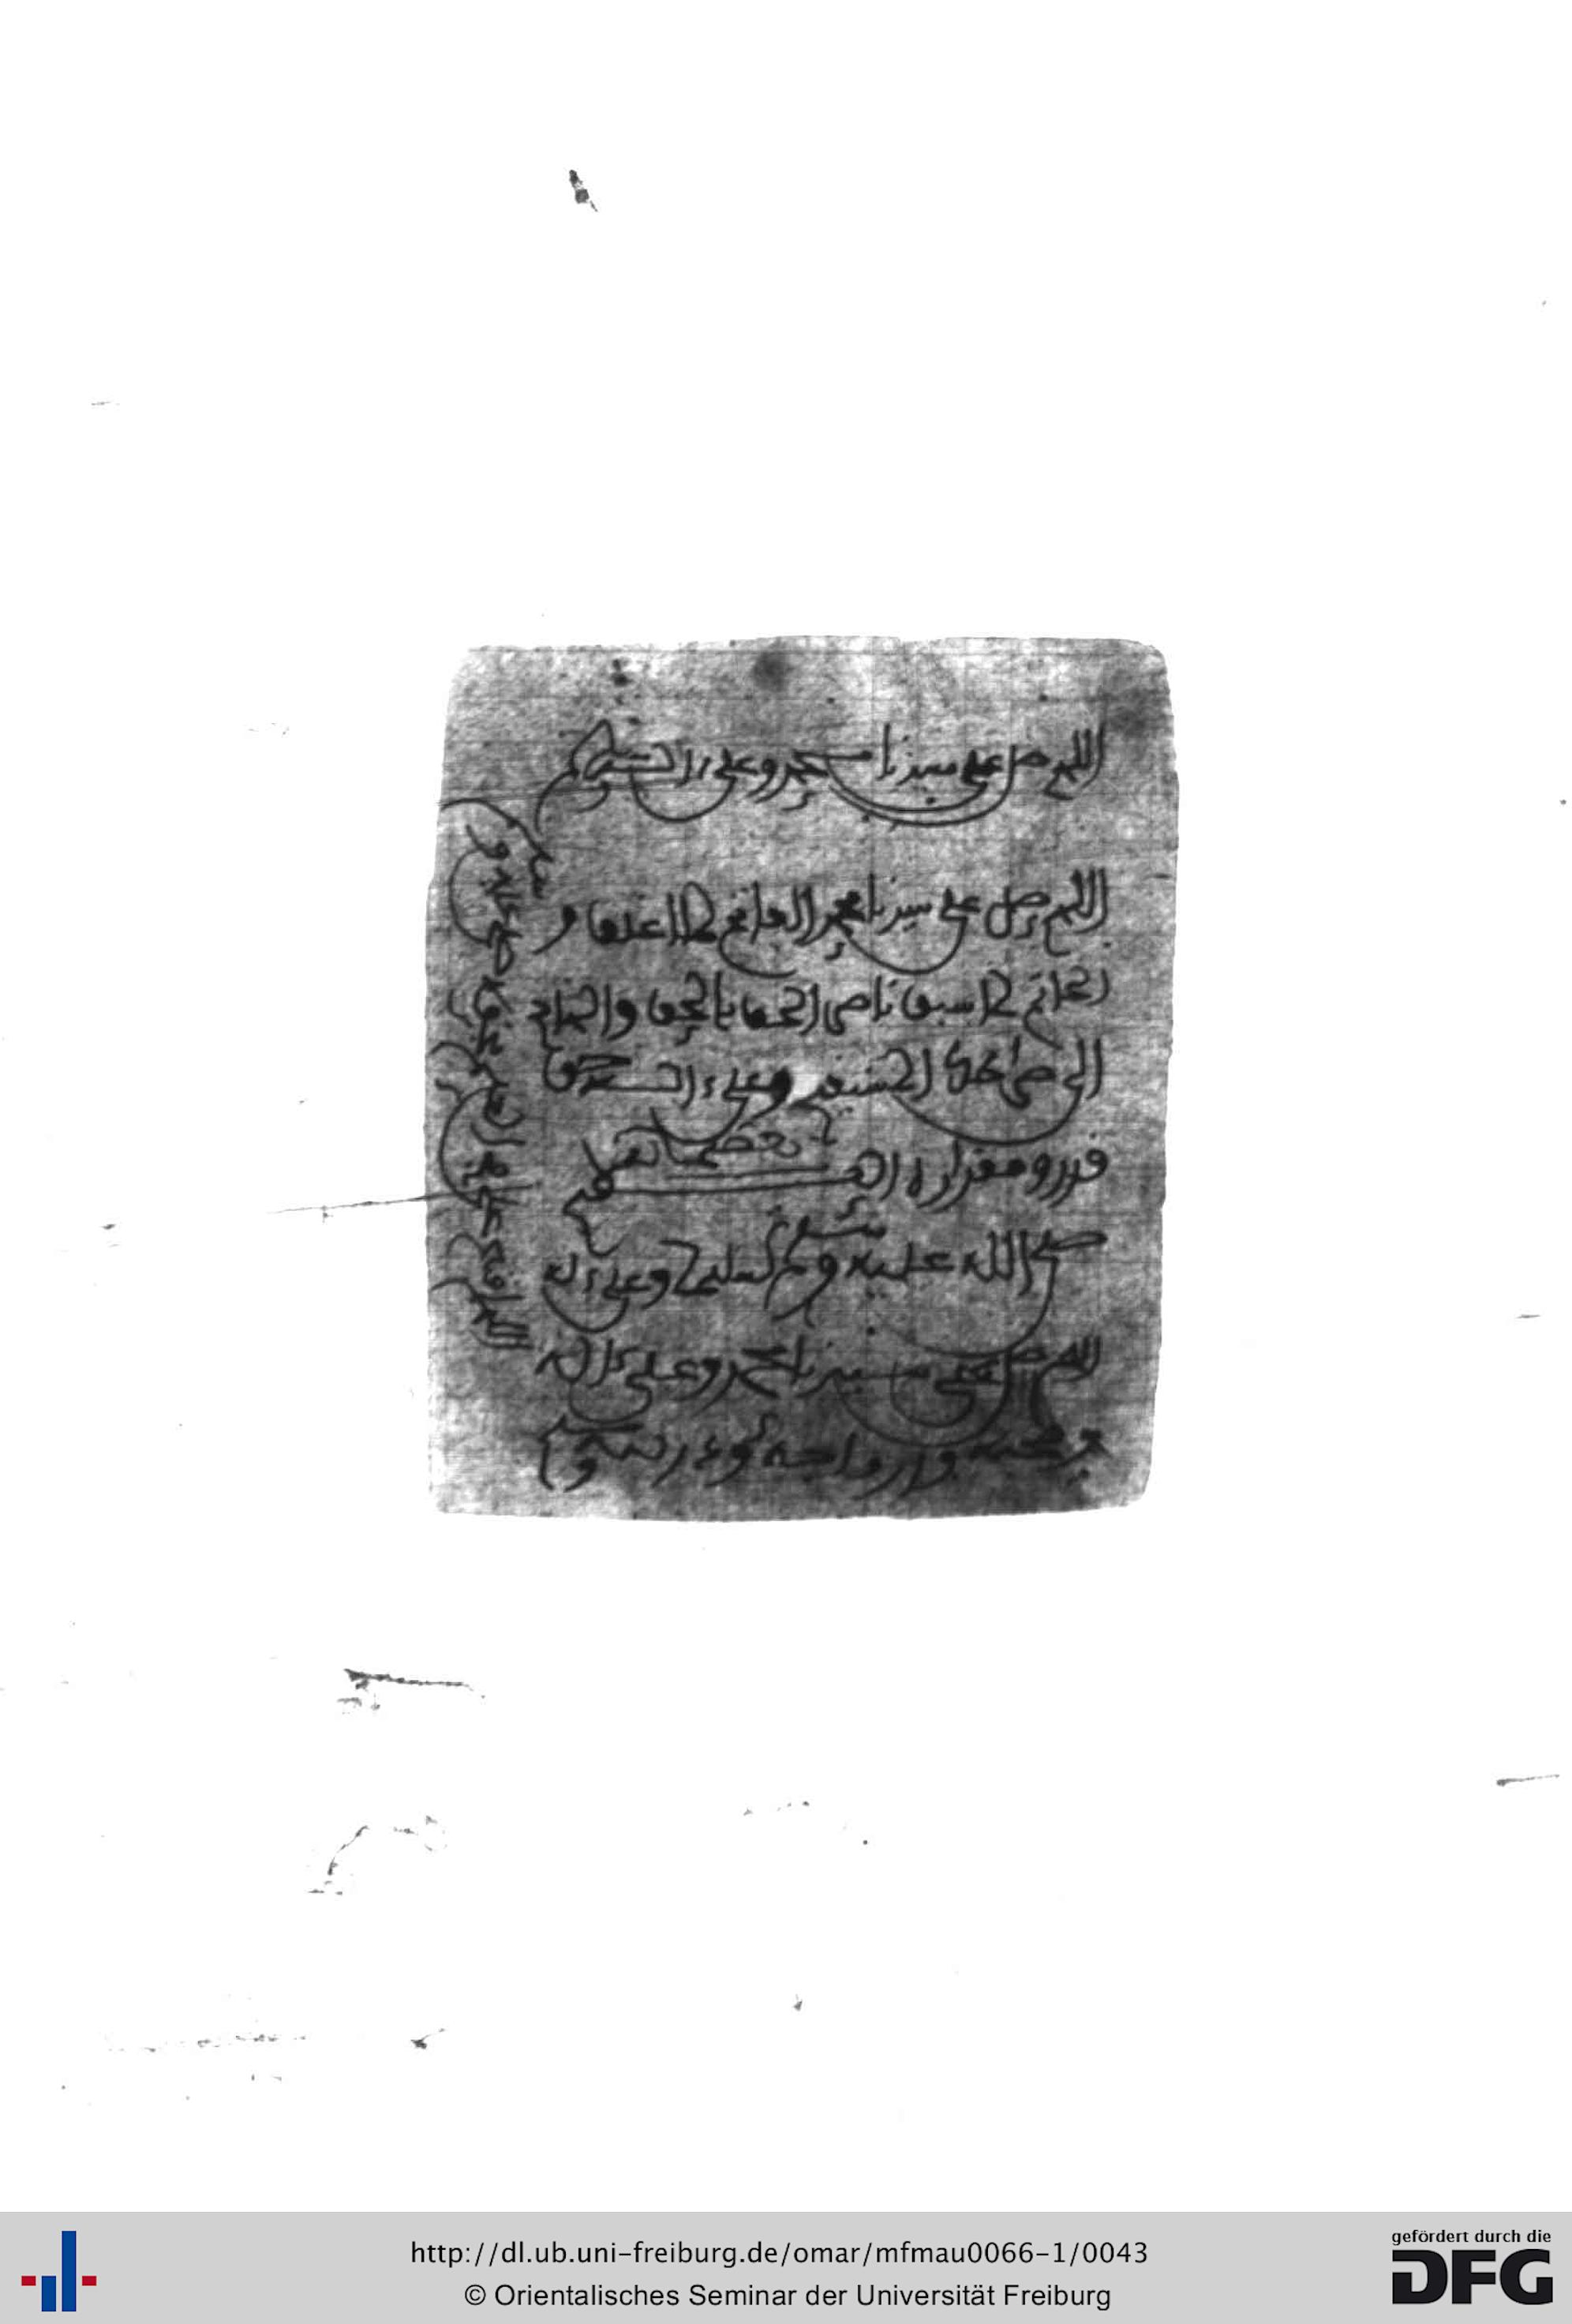 اللهم صل على سيدنا محمد وعلى ءاله وسلم
اللهم صل على سيدنا محمد الفاتح لما اغلق و
الخاتم لما سبق ناصر الحق بالحق والهادي
الى صراطك المستقيم وعلى ءاله حق
قدره ومقداره العظيم
صلى الله عليه وسلم تسليما وعلى ءاله
اللهم صل على سيدنا محمد وعلى ءاله
وصحبه وازواجه وذريته وسلم
http://dl.ub.uni-freiburg.de/omar/mfmau0066-1/0043
© Orientalisches Seminar der Universität Freiburg
gefördert durch die
DFG